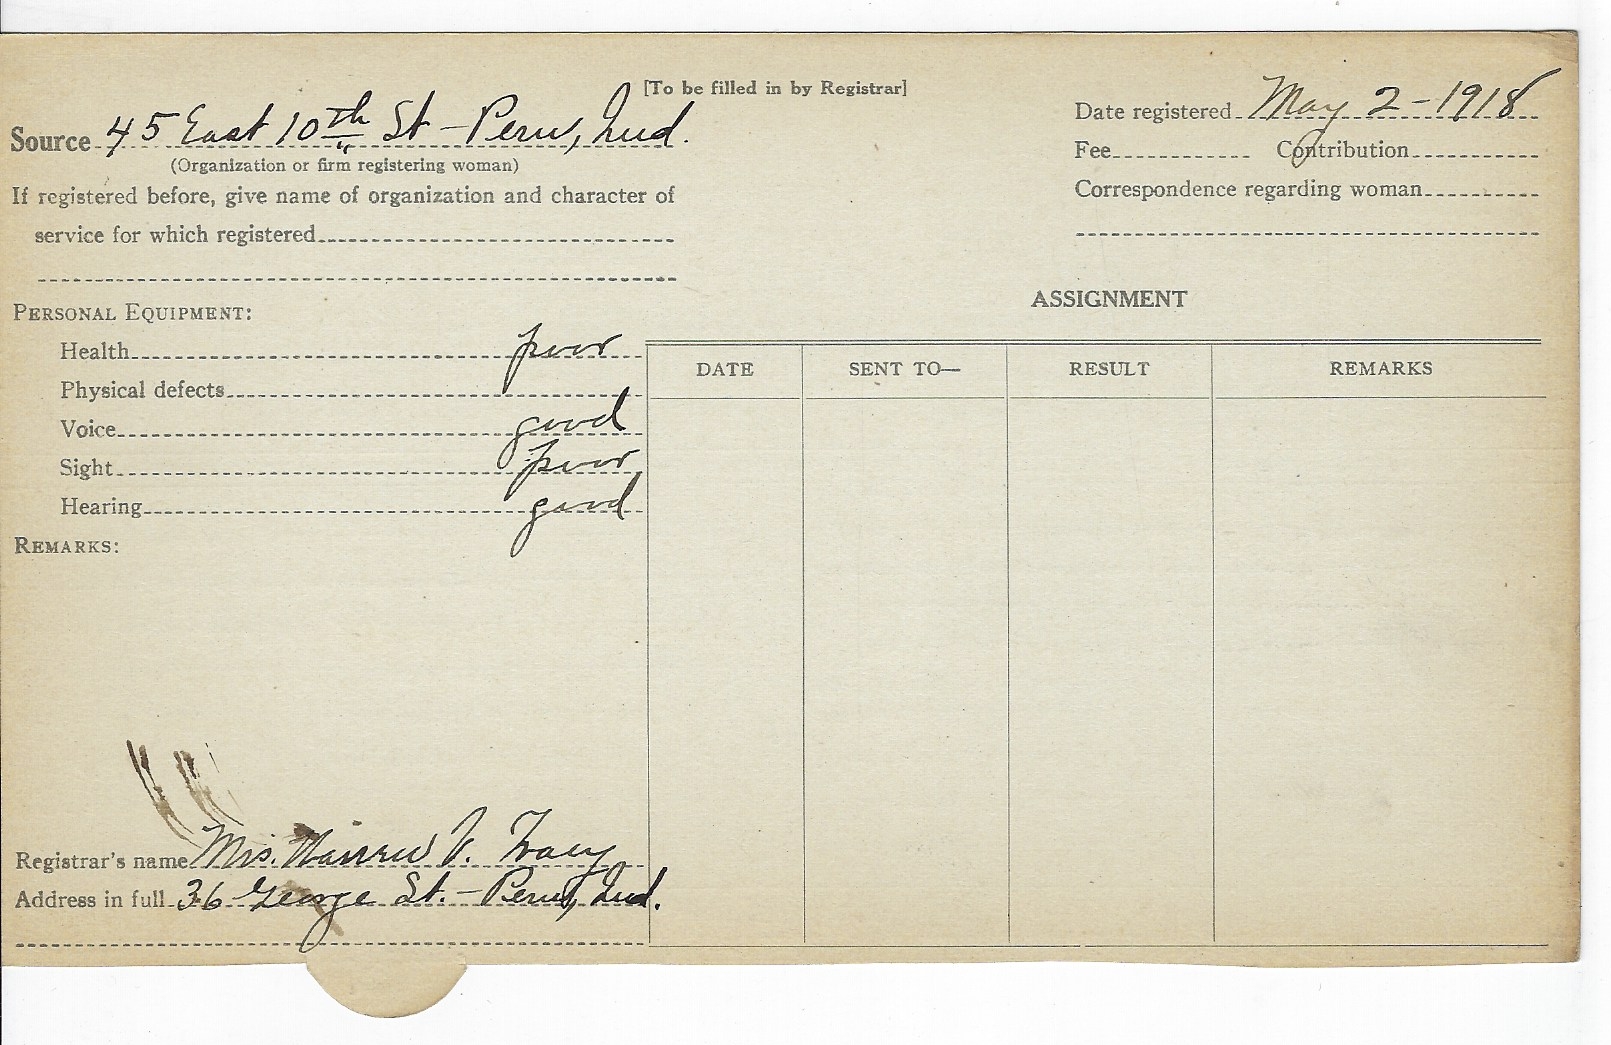 [To be filled in by Registrar]
Source 45 East 10th St - Peru, Ind.
(Organization or firm registering woman)
If registered before, give name of organization and character of
service for which registered
Date registered May 2-1918
Fee Contribution
Correspondence regarding woman
PERSONAL EQUIPMENT:
Health poor
Physical defects
Voice good
Sight poor
Hearing good
REMARKS:
ASSIGNMENT
DATE SENT TO— RESULT REMARKS
Registrar's name Mrs. V. Tracy
Address in full 36 George St. - Peru, Ind.